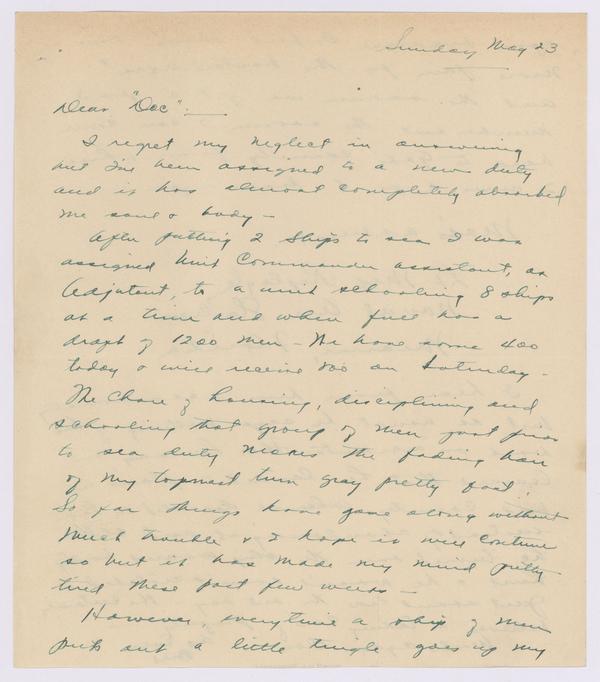 Sunday May 23
Dear "Doc": —
I regret my neglect in answering
but I've been assigned to a new duty
and it has almost completely absorbed
me soul & body —
After putting 2 ships to sea I was
assigned Unit Commander assistant, as
Adjutant, to a unit schooling 8 ships
at a time and when full has a
draft of 1200 men — We have some 400
today & will receive 800 on Saturday —
The chore of housing, disciplining and
schooling that group of men just prior
to sea duty makes the fading hair
of my topmast turn gray pretty fast.
So far things have gone along without
much trouble & I hope it will continue
so but it has made my mind pretty
tired these past few weeks —
However, everytime a ship of men
puts out a little tingle goes up my